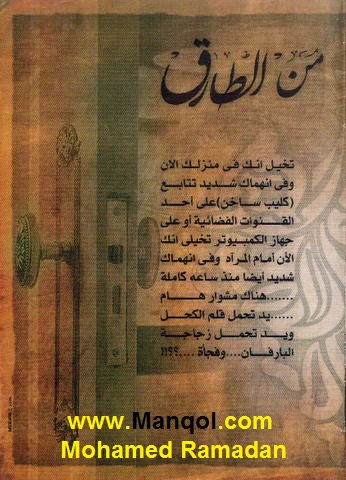 من الطارق
تخيل انك فى منزلك الان
وفى انهماك شديد تتابع
(كليب ساخن)على أحد
القنوات الفضائية أو على
جهاز الكمبيوتر تخيلى انك
الأن أمام المرآه وفى انهماك
شديد أيضا منذ ساعه كاملة
.......هناك مشوار هام
......يد تحمل قلم الكحل
ويد تحمل زجاجة
البارفان....وفجأة ....؟؟!!
www.Manqol.com
Mohamed Ramadan